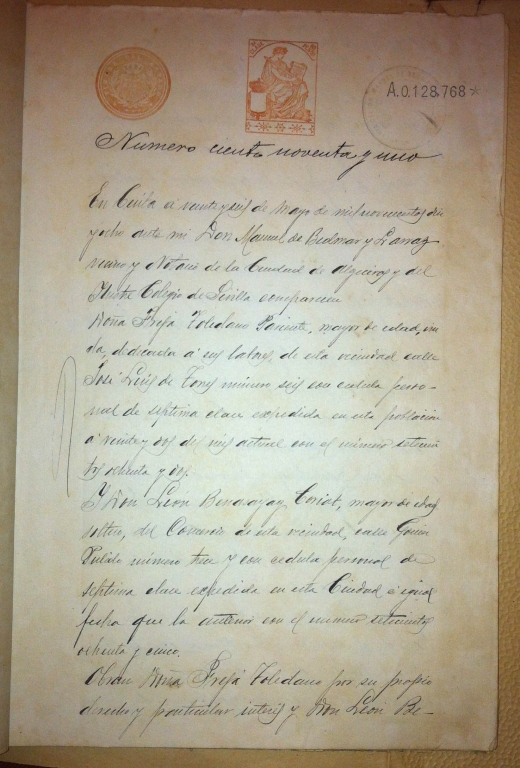 A.0.128.768*
Numero ciento noventa y uno
En Ceuta á veinte y seis de Mayo de mil novecientos diez
y ocho ante mi Don Manuel de Bedmar y Larraz
vecino y Notario de la Ciudad de Algeciras y del
Ilustre Colegio de Sevilla comparecen
Doña Freja Toledano Pariente, mayor de edad, viu-
da, dedicada á sus labores, de esta vecindad calle
José Luis de Torres número seis con cedula perso-
nal de septima clase expedida en esta población
á veinte y dos del mes actual con el número setecien
tos ochenta y dos.
Y Don León Benzazay Coriat, mayor de edad
soltero, del Comercio de esta vecindad, calle Gomez
Pulido número trece y con cedula personal de
septima clase expedida en esta Ciudad é igual
fecha que la anterior con el número setecientos
ochenta y cinco.
Obran Doña Freja Toledano por su propio
derecho y particular interés y Don León Be-